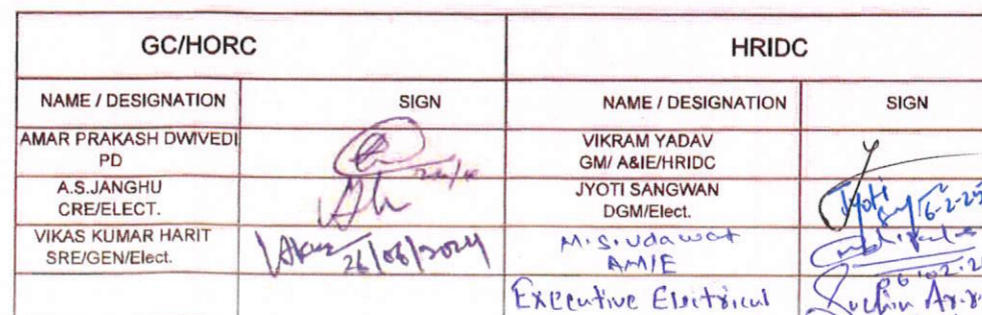 GC/HORC HRIDC
NAME / DESIGNATION SIGN NAME / DESIGNATION SIGN
AMAR PRAKASH DWIVEDI
PD
VIKRAM YADAV
GM/ A&IE/HRIDC
A.S.JANGHU
CRE/ELECT.
JYOTI SANGWAN
DGM/Elect.
Jyoti
6-2-25
VIKAS KUMAR HARIT
SRE/GEN/Elect.
Vikas 26/06/2024
M.S. Udawat
AM/E
Executive Electrical